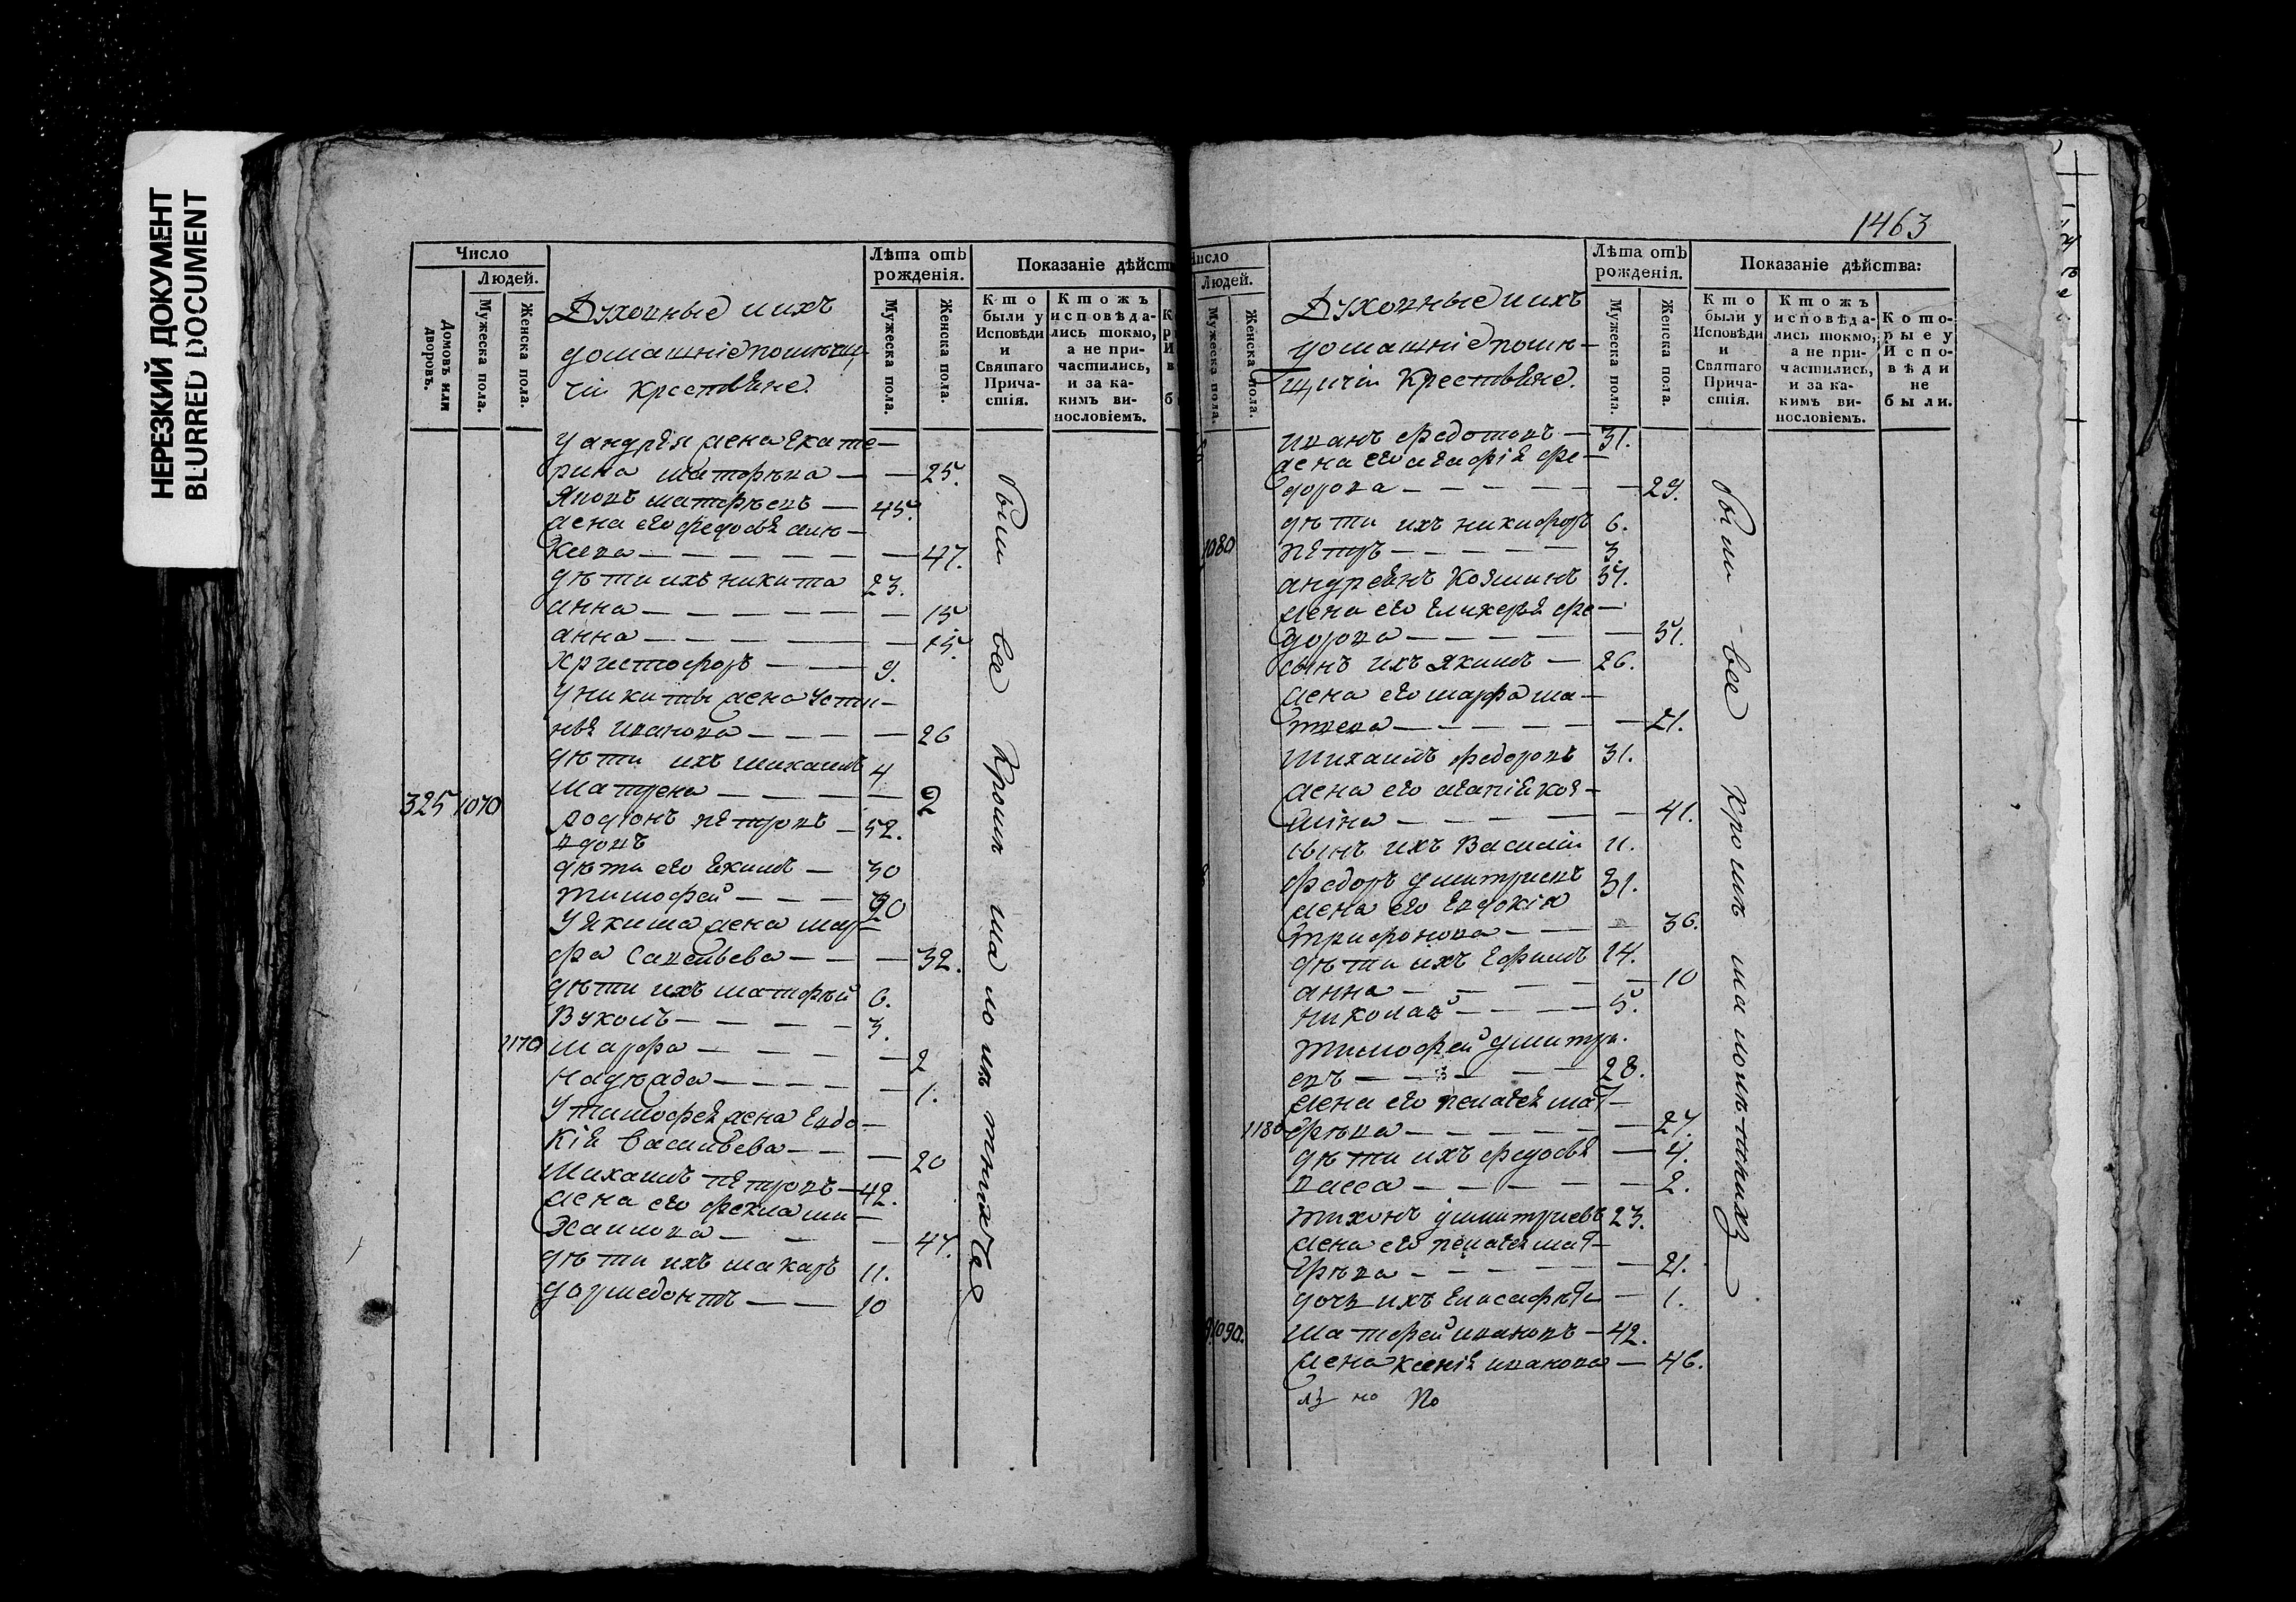 НЕРЕЗКИЙ ДОКУМЕНТ
BLURRED DOCUMENT
Число
Людей.
Домовъ или дворовъ.
Мужеска пола.
Женска пола.
Духовные и ихъ
домашніе помѣщи
чіи крестьяне.
Лѣта отъ рожденія.
Мужеска пола.
Женска пола.
Показаніе дѣйств
Кто были у Исповѣди и Святаго Причастія.
Ктожъ исповѣдались токмо, а не причастились, и за какимъ винословіемъ.
у андрея жена екате—
рина матфѣева — — 25.
Яковъ матфѣевъ — 45.
жена его федосья алѣ—
ксева — — — — — — 47.
дѣти ихъ никита 23.
анна — — — — — — 15
анна — — — — — — 15.
христофоръ — — — 9.
у никиты жена Усти—
нья иванова — — — — 26
дѣти ихъ михаилъ 4
325 1070 матрена — — — — 2
родіонъ петровъ — 52.
вдовъ
дѣти его екимъ — 30
тимофей — — — 20
У якима жена мар—
фа Савельева — — — 32.
дѣти ихъ матфѣй 6.
Вуколъ — — — — — 3.
1170 марфа — — — — — 2
надѣжда — — — — — 1.
У тимофея жена Евдо—
кія васильева — — — 20
Михаилъ петровъ — 42.
жена его фекла ми—
хаилова — — — 47.
дѣти ихъ макаръ 11.
дормедонтъ — — 10
были все кромѣ малолѣтныхъ
1463
Число
Людей.
Мужеска пола.
Женска пола.
Духовные и ихъ
домашніе помѣ—
щичіи крестьяне.
Лѣта отъ рожденія.
Мужеска пола.
Женска пола.
Показаніе дѣйства:
Кто были у Исповѣди и Святаго Причастія.
Ктожъ исповѣдались токмо, а не причастились, и за какимъ винословіемъ.
Которые у Исповѣди не были.
иванъ федотовъ — 31.
жена его агафія фе—
дорова — — — — — — 29.
дѣти ихъ никифоръ 6.
1080 петръ — — — — — 3.
андреянъ козминъ
жена его гликерья фе—
дорова — — — — — — 51.
сынъ ихъ якимъ — 26.
жена его марфа ма—
твева — — — — — — 21.
михаилъ федоровъ 31.
жена его агапія коз—
мина — — — — — — 41.
сынъ ихъ Василій 11.
федоръ дмитриевъ 31.
жена его Евдокія
трифонова — — — 36.
дѣти ихъ Ефимъ 14.
анна — — — — — 10
николай — — — — 5.
тимофей дмитри.
евъ — — — — — 28.
жена его пелагея мат—
1180 фѣева — — — — — — 27.
дѣти ихъ федосья — 4.
васса — — — — — — 2.
тихонъ дмитриевъ 23.
жена его пелагея мат—
фѣева — — — — — — 21.
дочь ихъ елисафѣта — 1.
1090. матфей ивановъ — 42.
жена ксенія иванова — 46.
были все кромѣ малолѣтныхъ